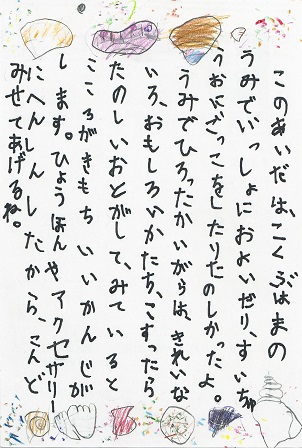 このあいだは、こくぶはまの
うみでいっしょにおよいだり、すいちゅ
うおにごっこをしたりたのしかったよ。
うみでひろったかいがらは、きれいな
いろ、おもしろいかたち、こすったら
たのしいおとがして、みていると
こころがきもちいいかんじが
します。ひょうほんやアクセサリー
にへんしんしたから、こんど
みせてあげるね。